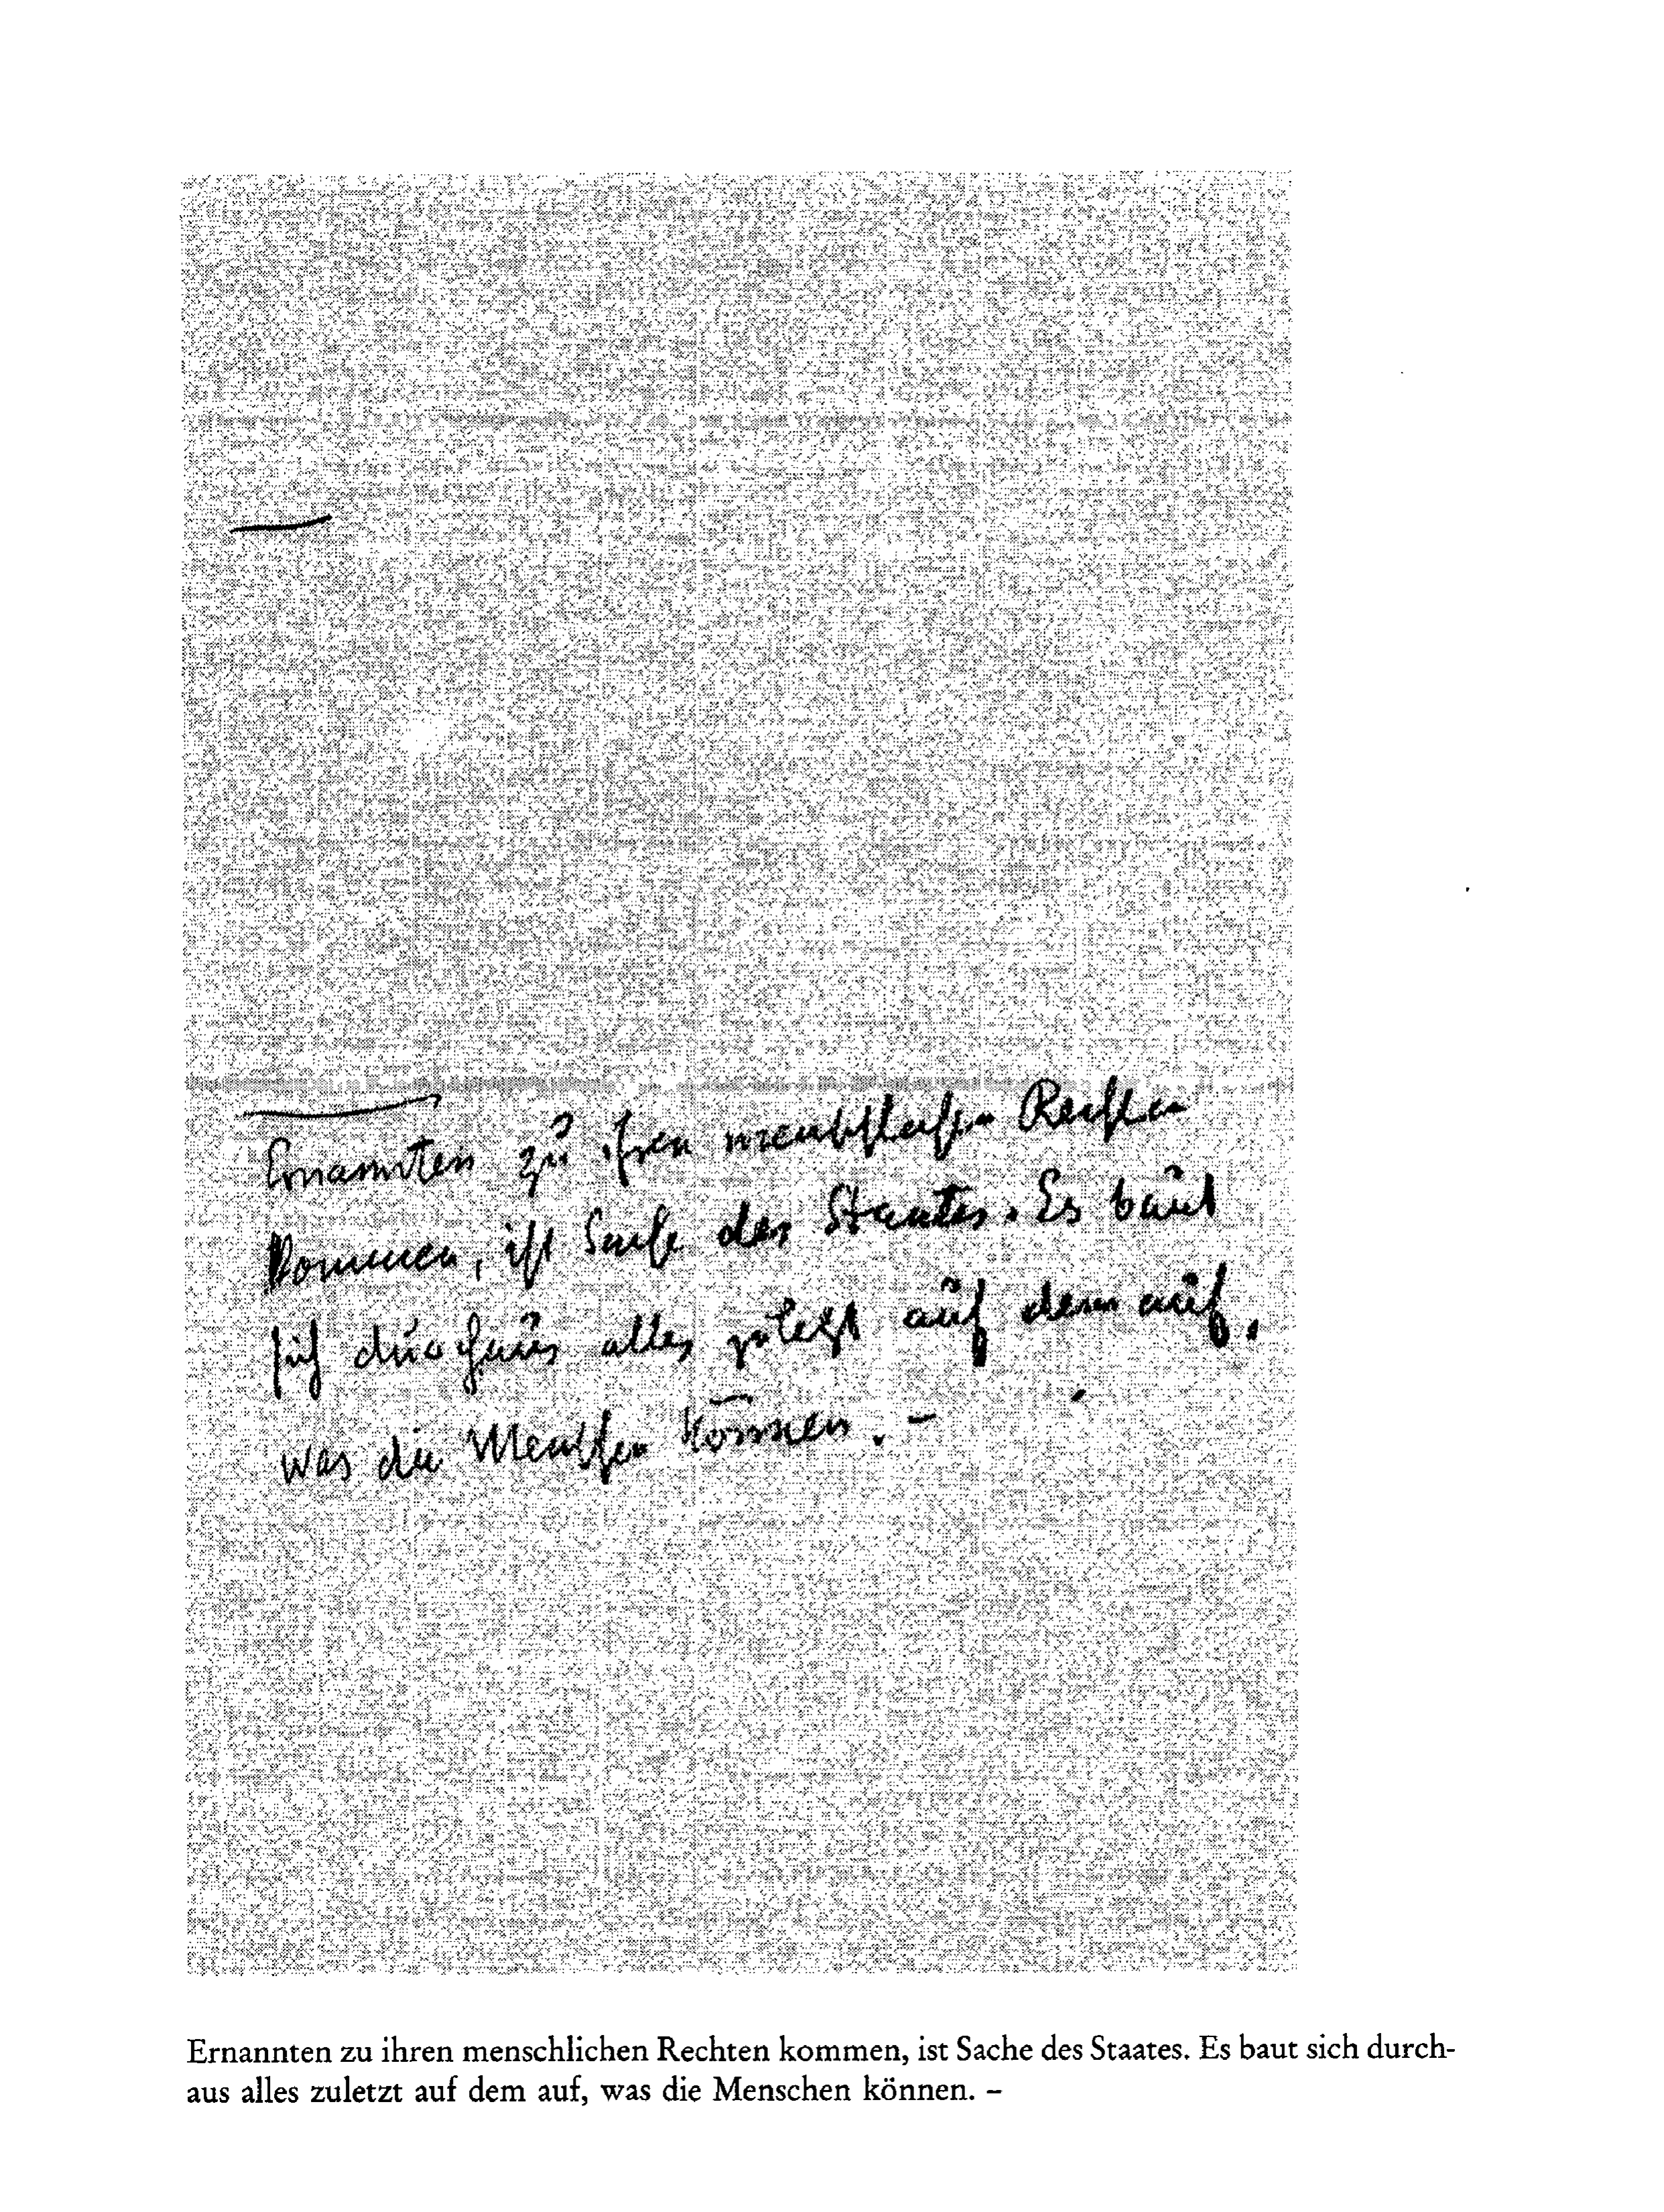 Ernannten zu ihren menschlichen Rechten
kommen, ist Sache des Staates. Es baut
sich durchaus alles zuletzt auf dem auf,
was die Menschen können. –
Ernannten zu ihren menschlichen Rechten kommen, ist Sache des Staates. Es baut sich durch-
aus alles zuletzt auf dem auf, was die Menschen können. –